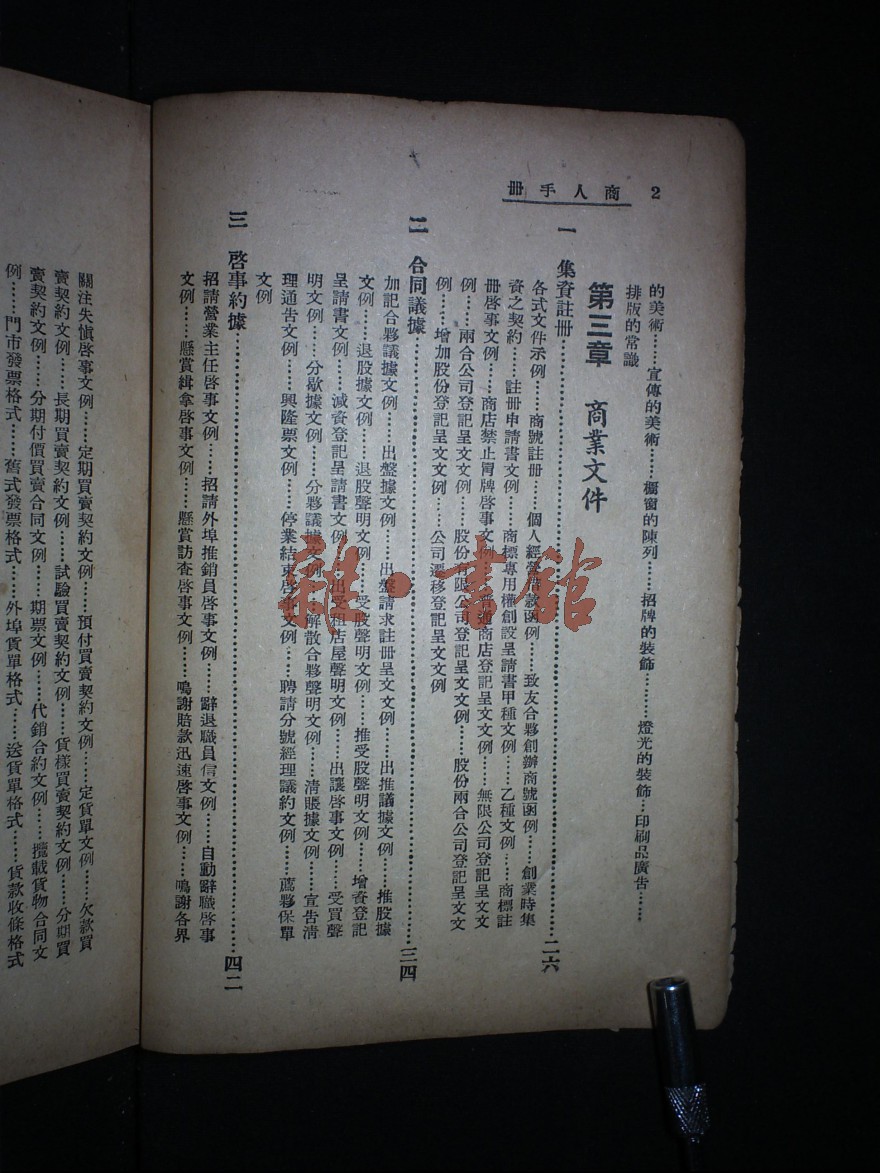 2 商人手冊
的美術……宣傳的美術……櫥窗的陳列……招牌的裝飾……燈光的裝飾…印刷品廣告……
排版的常識
第三章 商業文件
一 集資註冊……二六
各式文件示例……商號註冊……個人經營借款函例……致友合夥創辦商號函例……創業時集
資之契約……註冊申請書文例……商標專用權創設呈請書甲種文例……乙種文例……商標註
冊啓事文例……商店禁止冐牌啓事文例…普通商店登記呈文文例……無限公司登記呈文文
例……兩合公司登記呈文文例……股份有限公司登記呈文文例……股份兩合公司登記呈文文
例……增加股份登記呈文文例……公司遷移登記呈文文例
二 合同議據……三四
加記合夥議據文例……出盤據文例……出盤請求註冊呈文文例……出推議據文例……推股據
文例……退股據文例……退股聲明文例……受股聲明文例……推受股聲明文例……增資登記
呈請書文例……減資登記呈請書文例……出受租店屋聲明文例……出讓啓事文例……受買聲
明文例……分歇據文例……分夥議據文例……解散合夥聲明文例……清賬據文例……宣告清
理通告文例……興隆票文例……停業結束啓事文例……聘請分號經理議約文例……薦夥保單
文例
三 啓事約據……四二
招請營業主任啓事文例……招請外埠推銷員啓事文例……辭退職員信文例……自動辭職啓事
文例……懸賞緝拿啓事文例……懸賞訪查啓事文例……鳴謝賠款迅速啓事文例……鳴謝各界
關注失愼啓事文例……定期買賣契約文例……預付買賣契約文例……定貨單文例……欠款買
賣契約文例……長期買賣契約文例……試驗買賣契約文例……貨樣買賣契約文例……分期買
賣契約文例……分期付價買賣合同文例……期票文例……代銷合約文例……攬載貨物合同文
例……門市發票格式……舊式發票格式……外埠貨單格式……送貨單格式……貨款收條格式
雜·書館